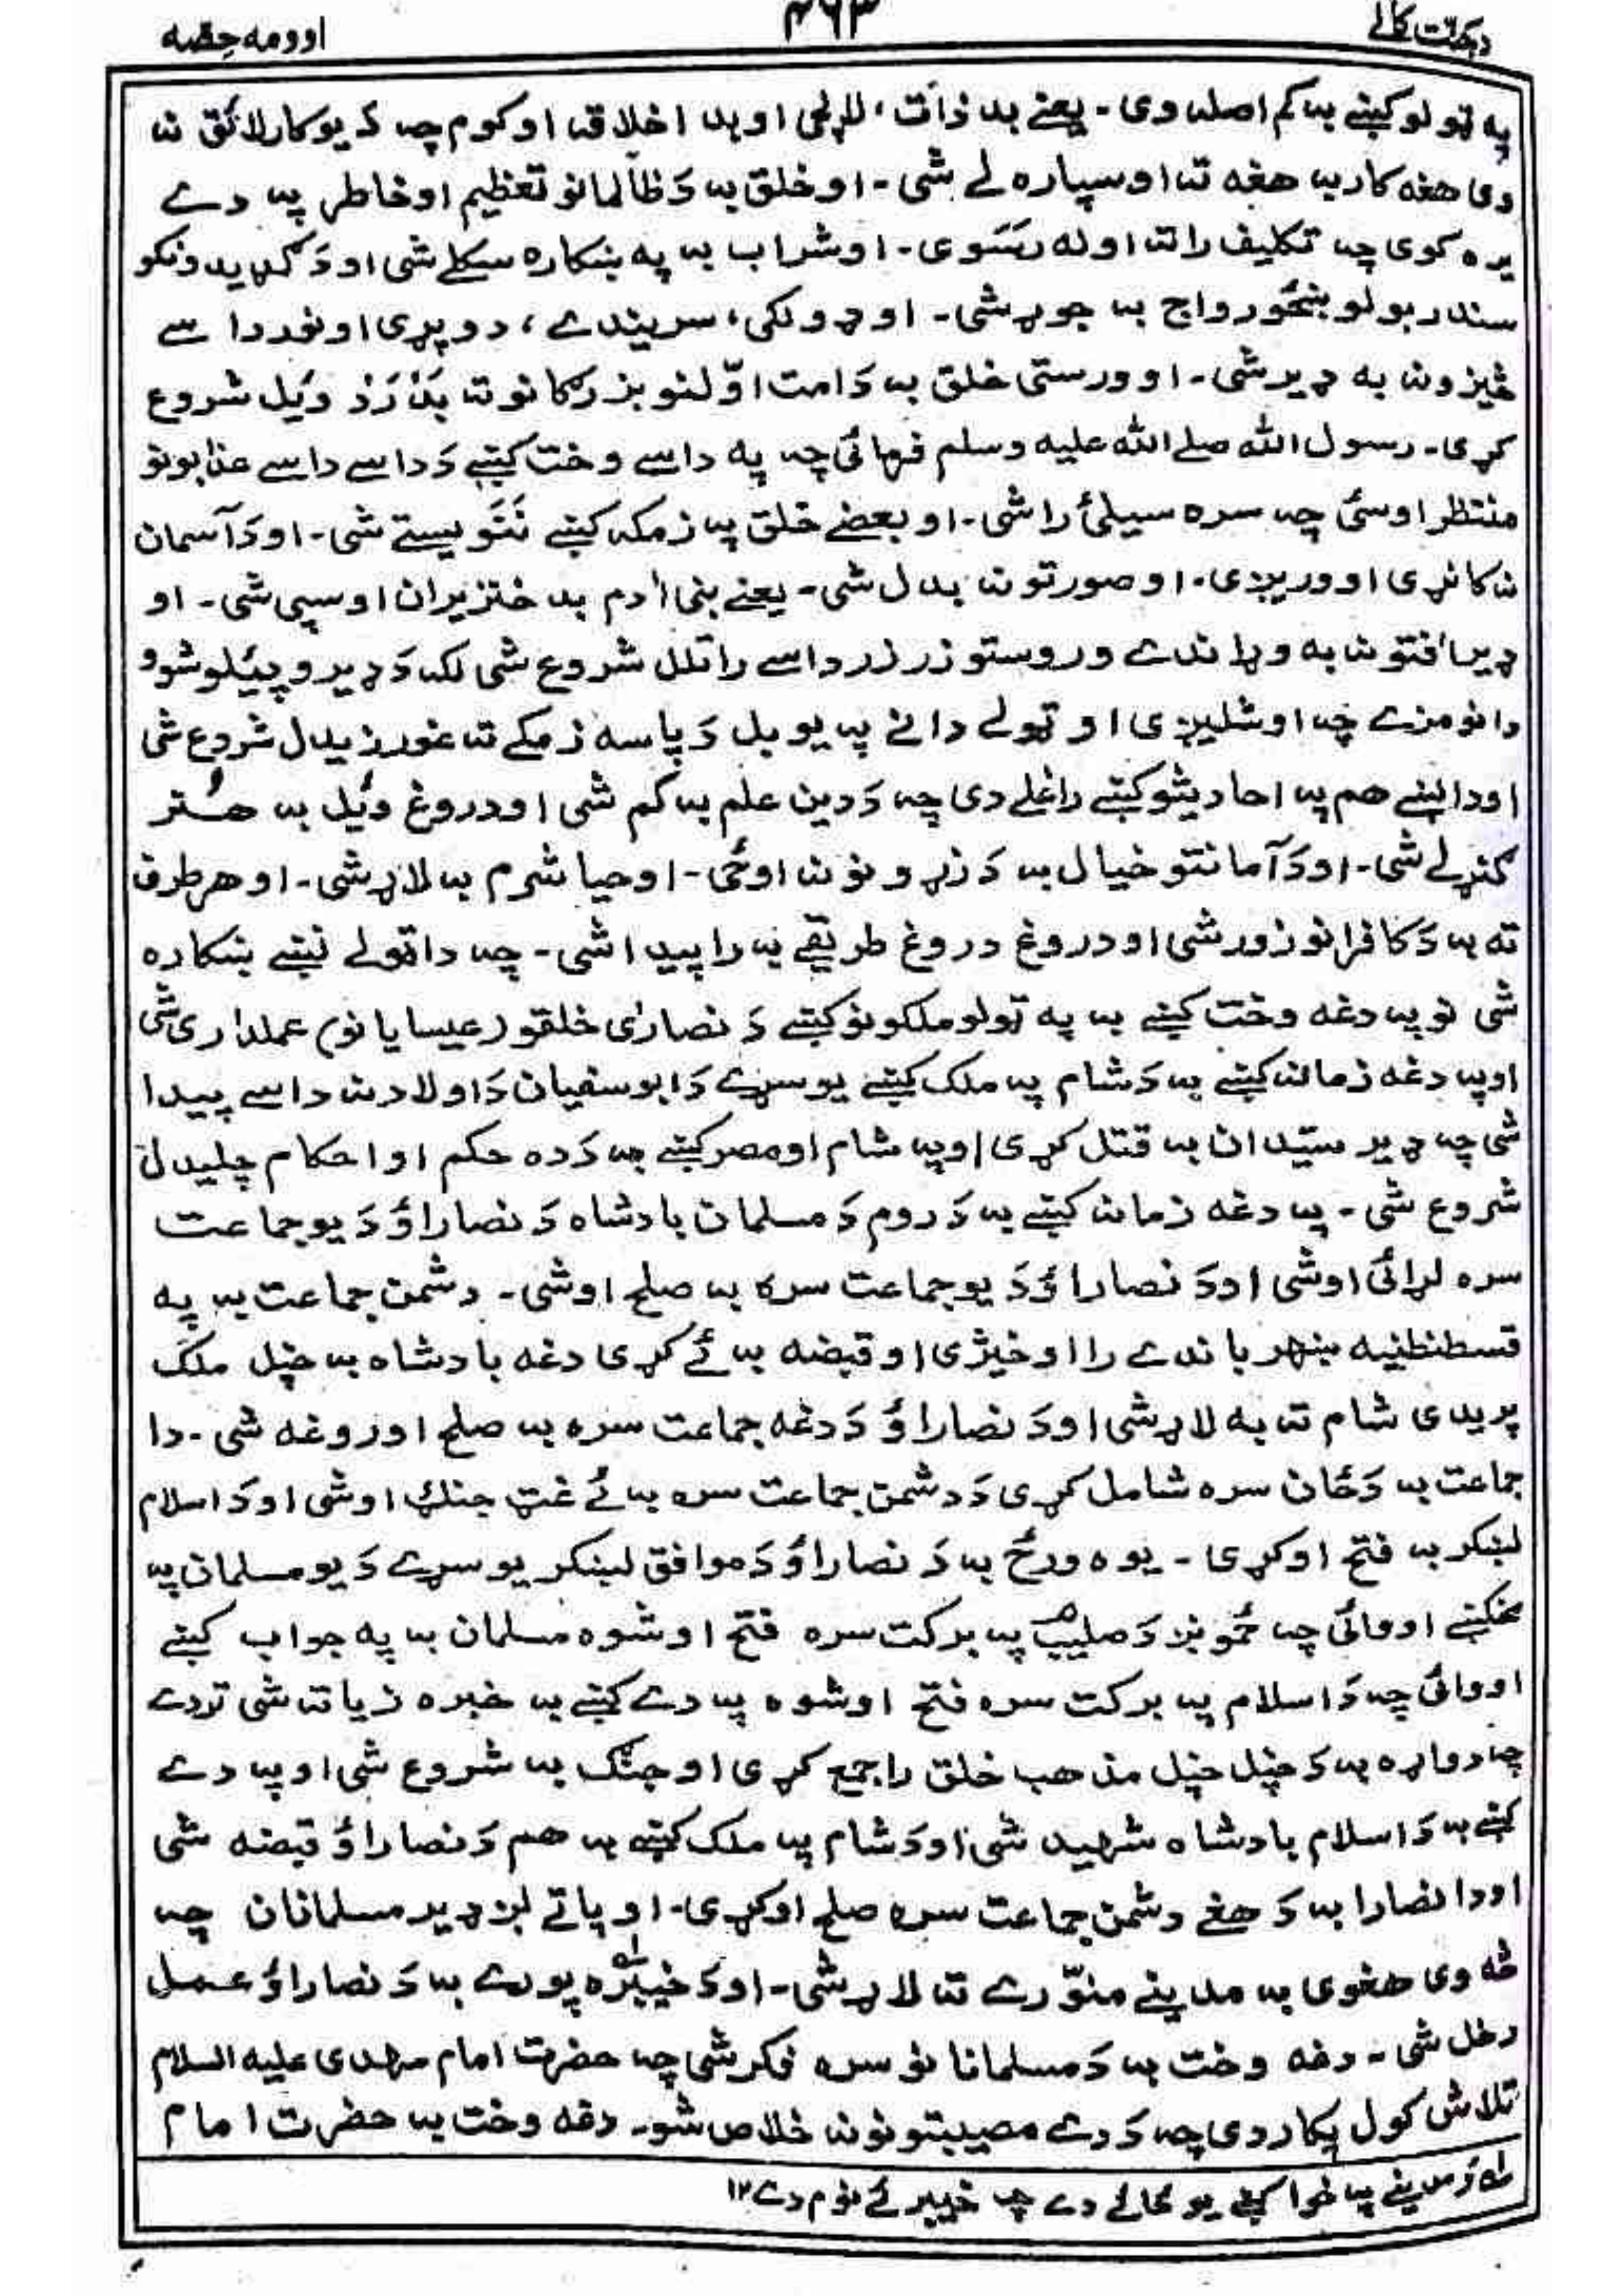 دجنّت کالے ۴۶۳ اوومه حِصّه
په ټولو کښے به کم اصله وی - یعنے بد ذات، لالچی او بد اخلاقه او کوم چه دَ یو کار لائق نه
وی هغه کار به هغه ته اوسپاره لے شی - او خلق به دَ ظالمانو تعظیم او خاطر په دے
یره کوی چه تکلیف راته اونه رسَوی - او شراب به په ښکاره سکلے شی او دَ ګډیدونکو
سندربولو ښځو رواج به جوړ شی - او ډولکۍ، سریندے، دوپړی او نور داسے
څیزونه به ډیر شی - او ورستی خلق به دَ امت اوّلنو بزرګانو ته بَدْ رَدْ وئیل شروع
کړی - رسول الله صلے الله علیه وسلم فرمائی چه په داسے وخت کښے دَ داسے داسے عذابونو
منتظر اوسئ چه سره سیلئ راشی - او بعضے خلق په زمکه کښے نَنَویستے شی - او دَ آسمان
نه کانړی اووریږی - او صورتونه بدل شی - یعنے بنی اٰدم به خنزیران او سپی شی - او
ډیر اٰفتونه به وړاندے وروستو زر زر داسے راتلل شروع شی لکه دَ ډیرو پیئلو شوو
دانو مزے چه اوشلیږی او ټولے دانے په یو بل دَپاسه زمکے ته غورزیدل شروع شی
او دا نښے هم په احادیثو کښے راغلے دی چه دَ دین علم به کم شی او دروغ وئیل به هُنر
ګنړلے شی - او دَ آمانتو خیال به دَ زړونو نه اوځی - او حیا شرم به لاړ شی - او هر طرف
ته به دَ کافرانو زور شی او دروغ دروغ طریقے به راپیدا شی - چه دا ټولے نښے ښکاره
شی نو په دغه وخت کښے به په ټولو ملکونو کښے دَ نصارٰی خلقو (عیسایانو) عملداری شی
او په دغه زمانه کښے به دَ شام په ملک کښے یو سړے دَ ابوسفیان دَ اولاد نه داسے پیدا
شی چه ډیر سیّدان به قتل کړی او په شام او مصر کښے به دَ ده حکم او احکام چلیدل
شروع شی - په دغه زمانه کښے به دَ روم دَ مسلمان بادشاه دَ نصاراؤ دَ یو جماعت
سره لړائی اوشی او دَ نصاراؤ دَ یو جماعت سره به صلح اوشی - دشمن جماعت به په
قسطنطنیه ښهر باندے را اوخیژی او قبضه به ئے کړی دغه بادشاه به خپل ملک
پریږدی شام ته به لاړ شی او دَ نصاراؤ دَ دغه جماعت سره به صلح اوروغه شی - دا
جماعت به دَ ځان سره شامل کړی دَ دشمن جماعت سره به ئے غټ جنګ اوشی او دَ اسلام
لښکر به فتح اوکړی - یوه ورځ به دَ نصاراؤ دَ موافق لښکر یو سړے دَ یو مسلمان په
مخکښے اووائی چه څموږ دَ صلیب په برکت سره فتح اوشوه مسلمان به په جواب کښے
اووائی چه دَ اسلام په برکت سره فتح اوشوه په دے کښے به خبره زیاته شی تر دے
چه دواړه به دَ خپل خپل مذهب خلق راجمع کړی او جنګ به شروع شی او په دے
کښے به دَ اسلام بادشاه شهید شی او دَ شام په ملک کښے به هم دَ نصاراؤ قبضه شی
او دا نصارا به دَ هغے دشمن جماعت سره صلح اوکړی - او پاتے لږ ډیر مسلمانان چه
څه وی هغوی به مدینے منوّرے ته لاړ شی - او دَ خیبره پورے به دَ نصاراؤ عمل
دخل شی - دغه وخت به دَ مسلمانانو سره فکر شی چه حضرت امام مهدی علیه السلام
تلاش کول پکار دی چه دَ دے مصیبتونو نه خلاص شو - دغه وخت به حضرت امام
له دَ مدینے په خوا کښے یو ځائے دے چه خیبر ئے نوم دے ۱۲